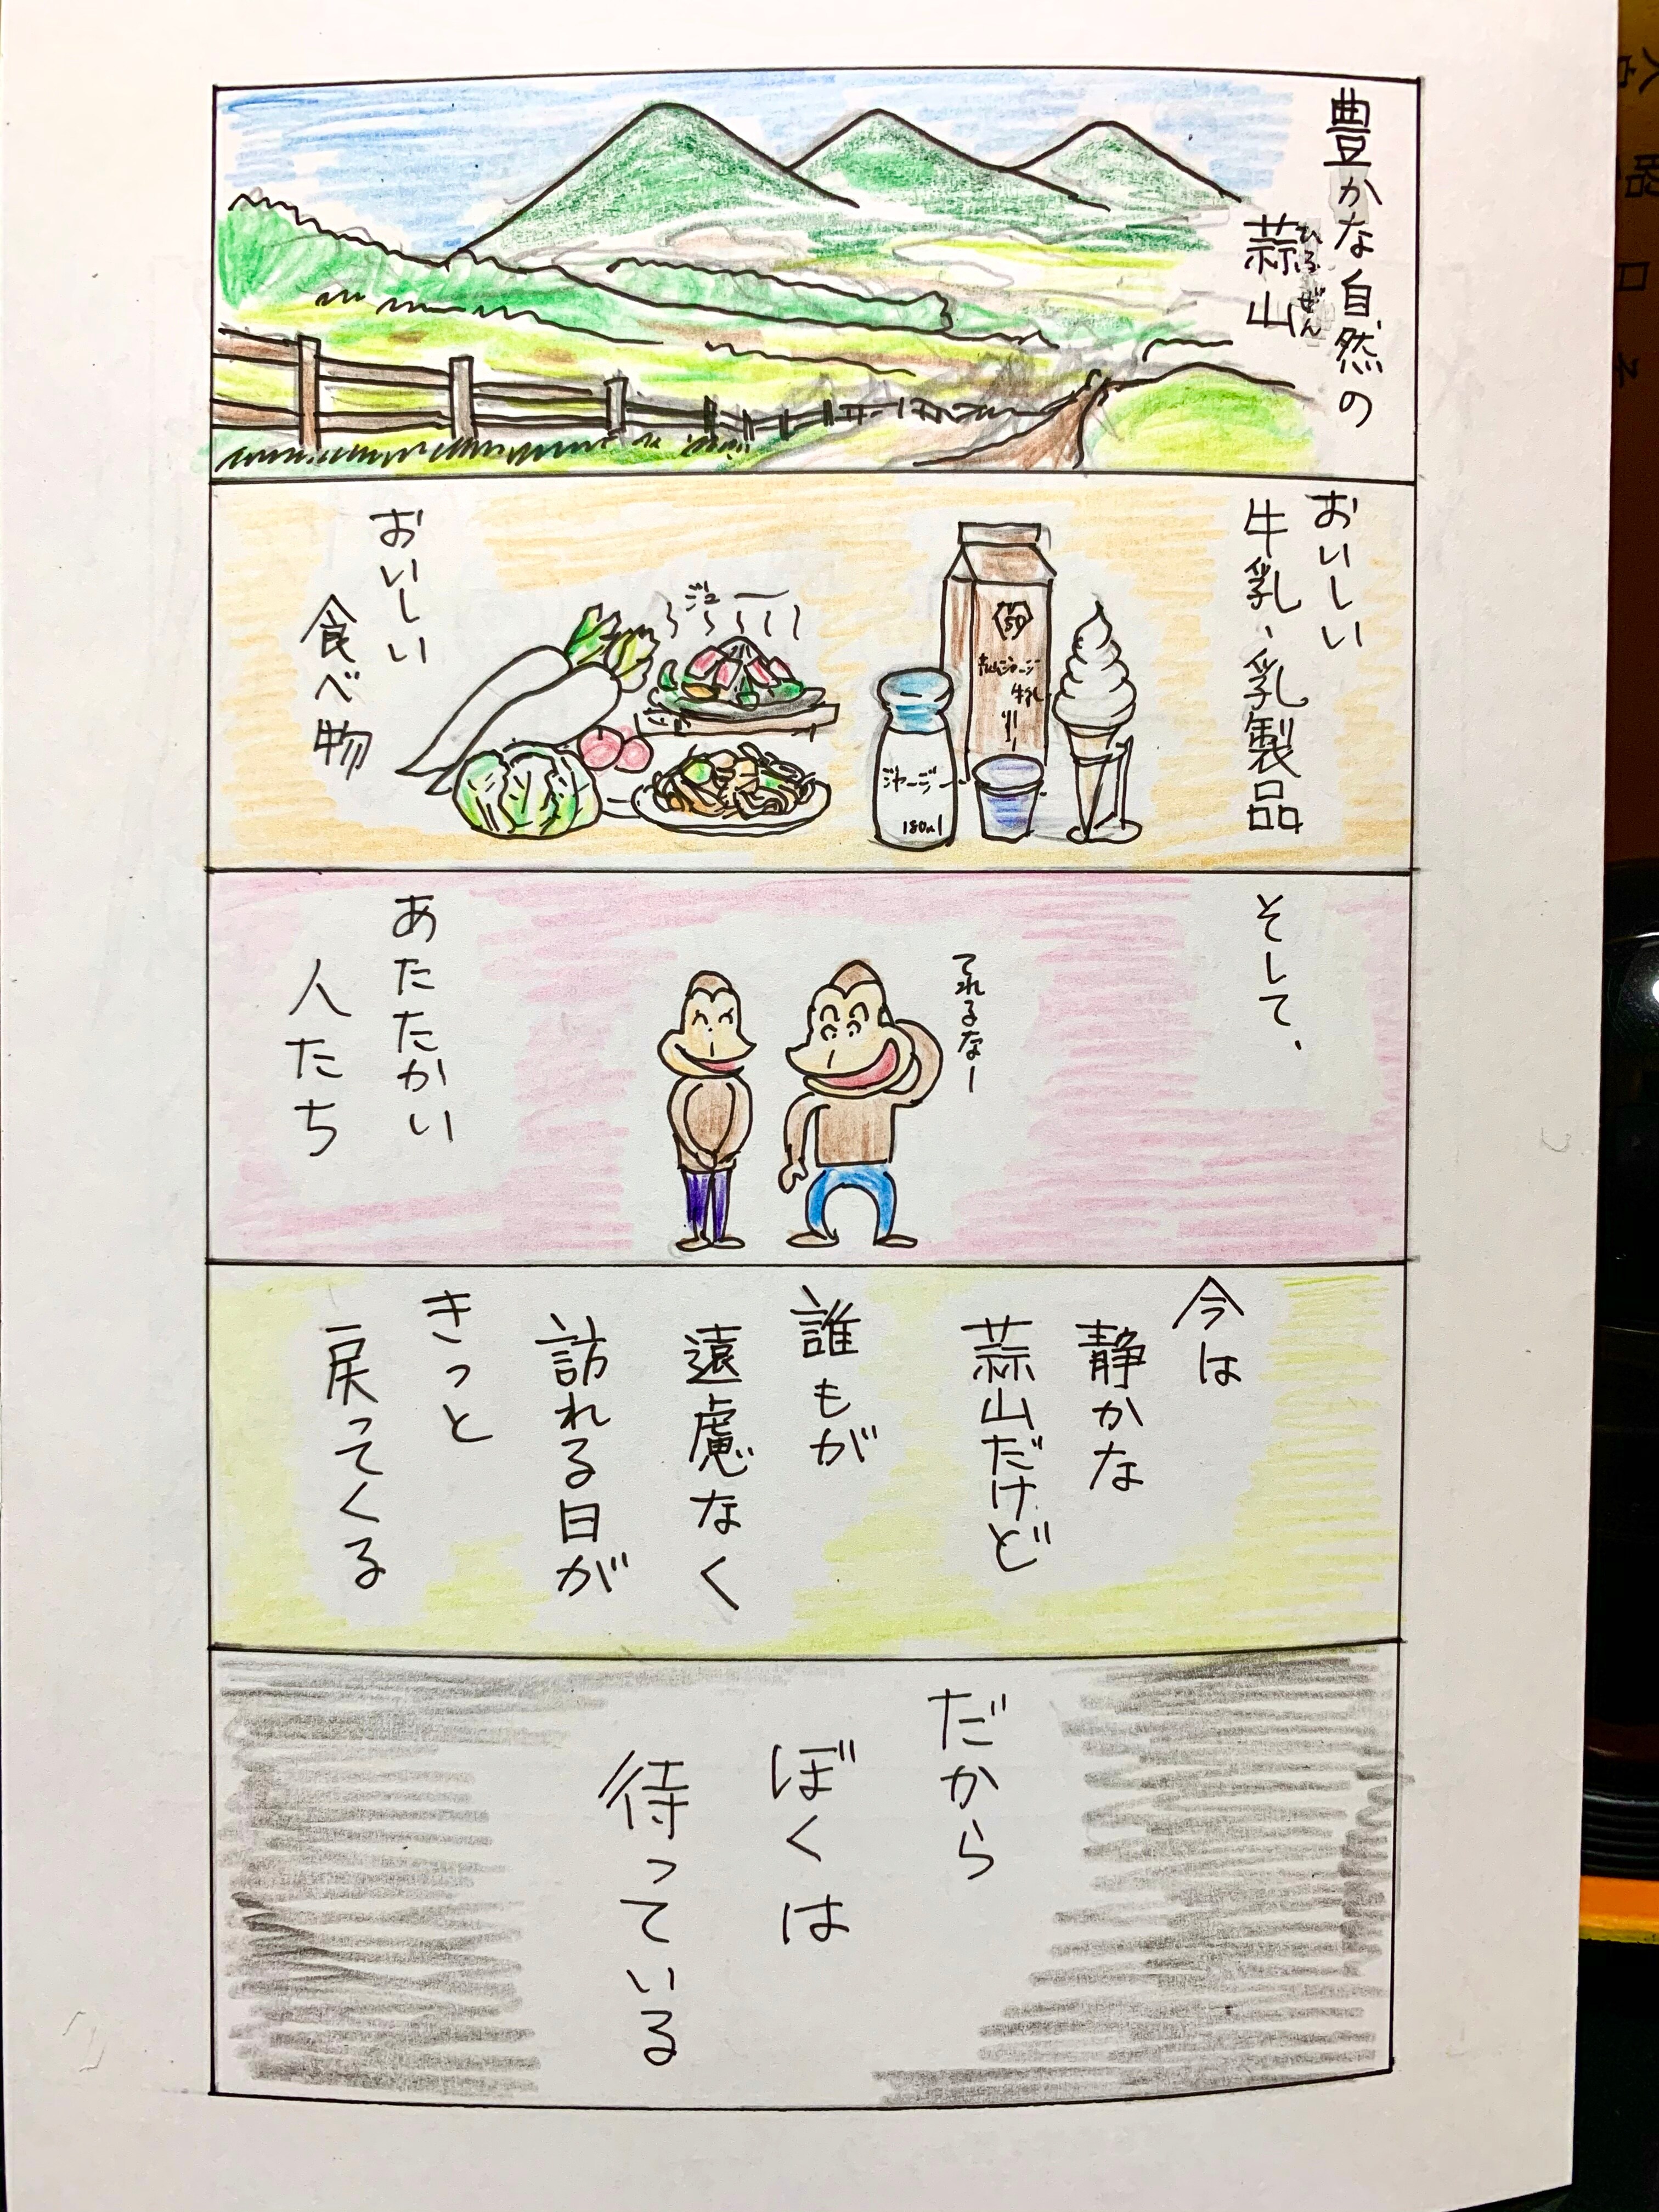 豊かな自然の
蒜山
ひるぜん
おいしい
牛乳、乳製品
ジャージー
180ml
牛乳
ジュー
おいしい
食べ物
そして、
てれるなー
あたたかい
人たち
今は
静かな
蒜山だけど
誰もが
遠慮なく
訪れる日が
きっと
戻ってくる
だから
ぼくは
待っている